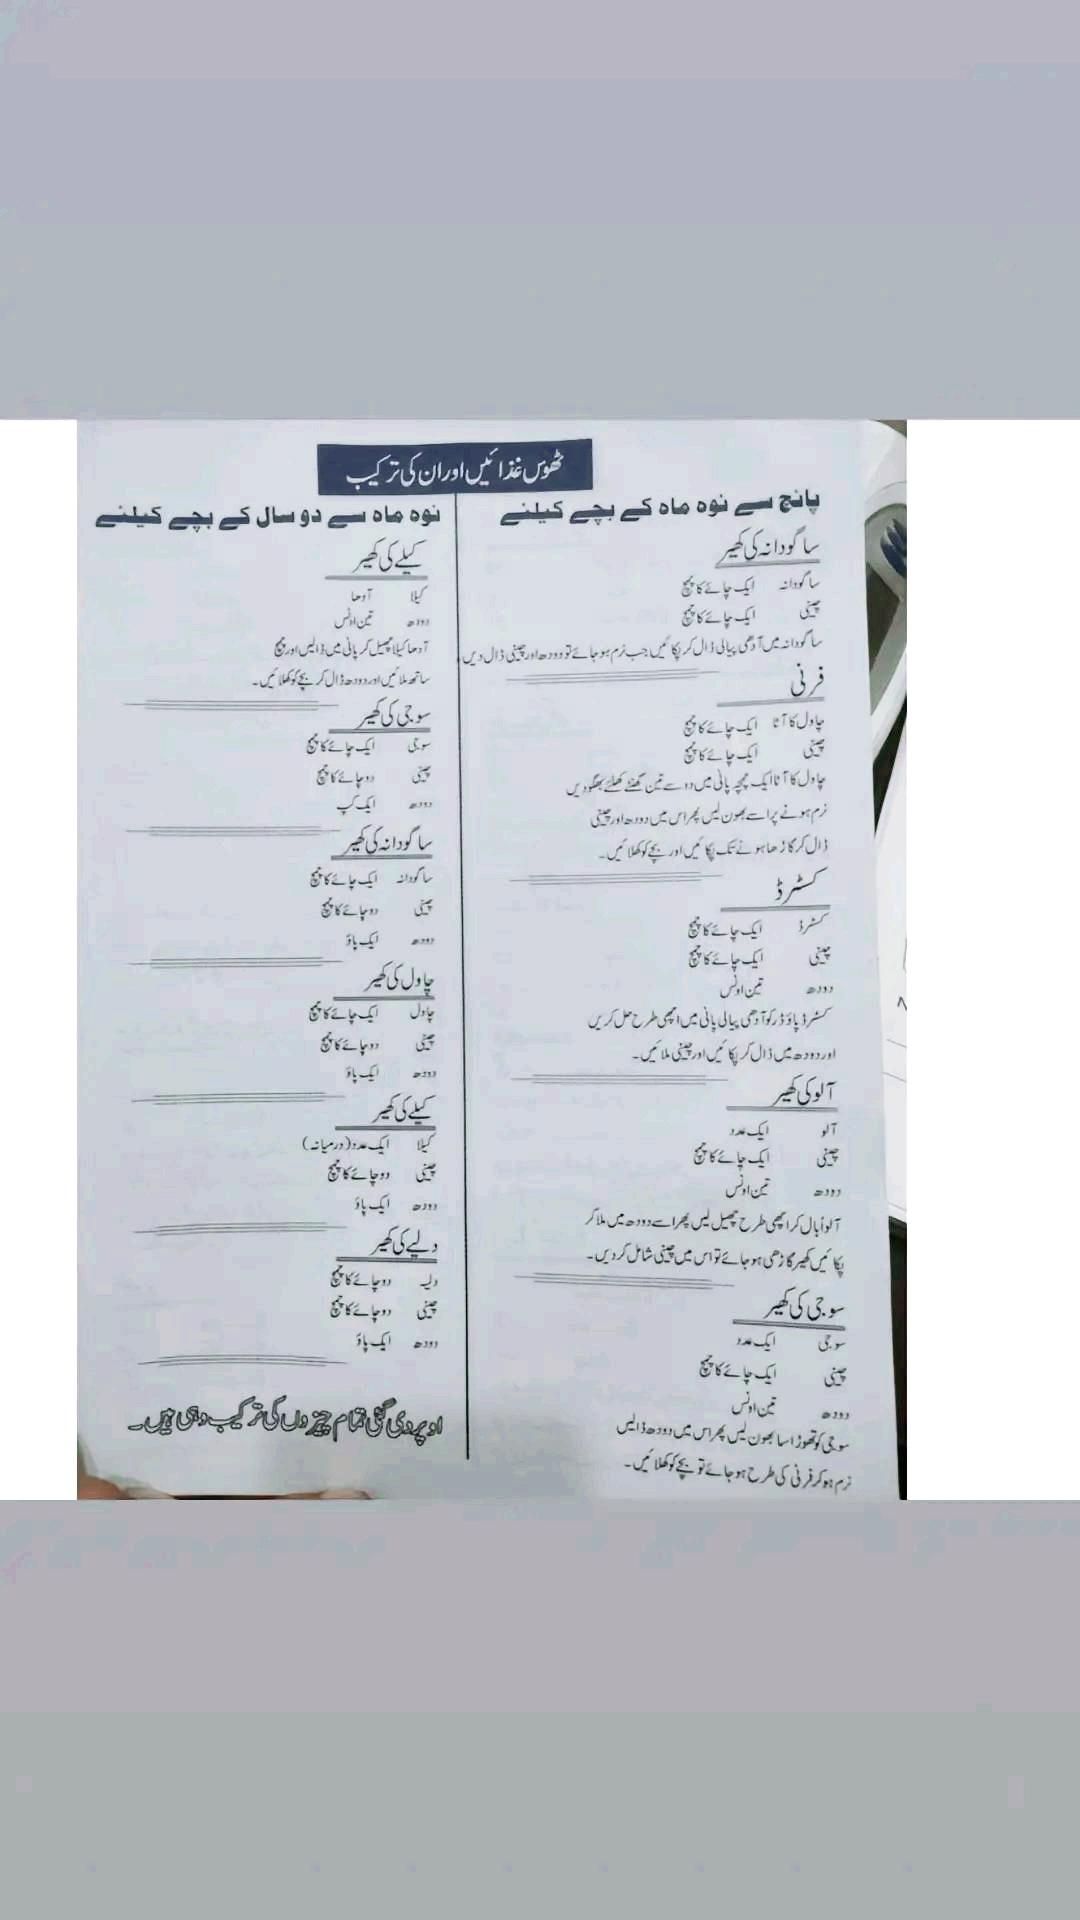 ٹھوس غذائیں اور ان کی ترکیب
پانچ سے نوہ ماہ کے بچے کیلئے
ساگودانہ کی کھیر
ساگودانہ ایک چائے کا چمچ
چینی ایک چائے کا چمچ
ساگودانہ میں آدھی پیالی ڈال کر پکائیں جب نرم ہو جائے تو دودھ اور چینی ڈال دیں
فرنی
چاول کا آٹا ایک چائے کا چمچ
چینی ایک چائے کا چمچ
چاول کا آٹا ایک چمچہ پانی میں دو سے تین گھنٹے کھلئے بھگو دیں
نرم ہونے پر اسے بھون لیں پھر اس میں دودھ اور چینی
ڈال کر گاڑھا ہونے تک پکائیں اور بچے کو کھلائیں۔
کسٹرڈ
کسٹرڈ ایک چائے کا چمچ
چینی ایک چائے کا چمچ
دودھ تین اونس
کسٹرڈ پاؤڈر کو آدھی پیالی پانی میں اچھی طرح حل کریں
اور دودھ میں ڈال کر پکائیں اور چینی ملائیں۔
آلو کی کھیر
آلو ایک عدد
چینی ایک چائے کا چمچ
دودھ تین اونس
آلو اُبال کر اچھی طرح چھیل لیں پھر اسے دودھ میں ملا کر
پکائیں کھیر گاڑھی ہو جائے تو اس میں چینی شامل کر دیں۔
سوجی کی کھیر
سوجی ایک عدد
چینی ایک چائے کا چمچ
دودھ تین اونس
سوجی کو تھوڑا سا بھون لیں پھر اس میں دودھ ڈالیں
نرم ہو کر فرنی کی طرح ہو جائے تو بچے کو کھلائیں۔
نوہ ماہ سے دو سال کے بچے کیلئے
کیلے کی کھیر
کیلا آدھا
دودھ تین اونس
آدھا کیلا چھیل کر پانی میں ڈالیں اور چمچ
ساتھ ملائیں اور دودھ ڈال کر بچے کو کھلائیں۔
سوجی کی کھیر
سوجی ایک چائے کا چمچ
چینی دو چائے کا چمچ
دودھ ایک کپ
ساگودانہ کی کھیر
ساگودانہ ایک چائے کا چمچ
چینی دو چائے کا چمچ
دودھ ایک پاؤ
چاول کی کھیر
چاول ایک چائے کا چمچ
چینی دو چائے کا چمچ
دودھ ایک پاؤ
کیلے کی کھیر
کیلا ایک عدد (درمیانہ)
چینی دو چائے کا چمچ
دودھ ایک پاؤ
دلیے کی کھیر
دلیہ دو چائے کا چمچ
چینی دو چائے کا چمچ
دودھ ایک پاؤ
اوپر دی گئی تمام چیزوں کی ترکیب وہی ہیں۔